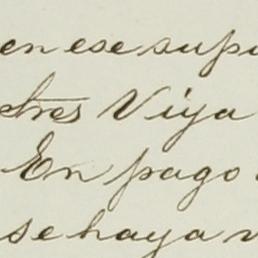 en ese supu
tres Viya
En pago
se haya